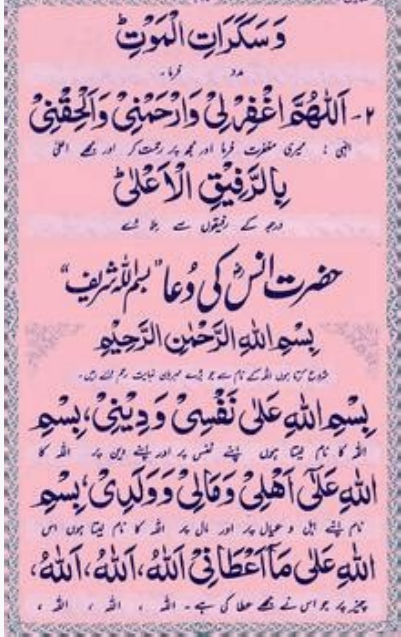 وَسَكَرَاتِ الْمَوْتِ
مدد فرما۔
۲- اَللّٰهُمَّ اغْفِرْ لِیْ وَارْحَمْنِیْ وَاَلْحِقْنِیْ
الٰہی : میری مغفرت فرما اور مجھ پر رحمت کر اور مجھے اعلیٰ
بِالرَّفِیْقِ الْاَعْلٰی
درجہ کے رفیقوں سے ملا دے
حضرت انسؓ کی دُعا "بسم اللہ شریف"
بِسْمِ اللهِ الرَّحْمٰنِ الرَّحِیْمِ
شروع کرتا ہوں اللہ کے نام سے جو بڑے مہربان نہایت رحم والے ہیں۔
بِسْمِ اللهِ عَلٰی نَفْسِیْ وَدِیْنِیْ، بِسْمِ
اللہ کا نام لیتا ہوں اپنے نفس پر اور اپنے دین پر اللہ کا
اللهِ عَلٰٓی اَهْلِیْ وَمَالِیْ وَوَلَدِیْ، بِسْمِ
نام اپنے اہل و عیال پر اور مال پر اللہ کا نام لیتا ہوں اس
اللهِ عَلٰی مَآ اَعْطَانِیْ اَللهُ، اَللهُ، اَللهُ،
چیز پر جو اس نے مجھے عطا کی ہے۔ اللہ ، اللہ ، اللہ ،